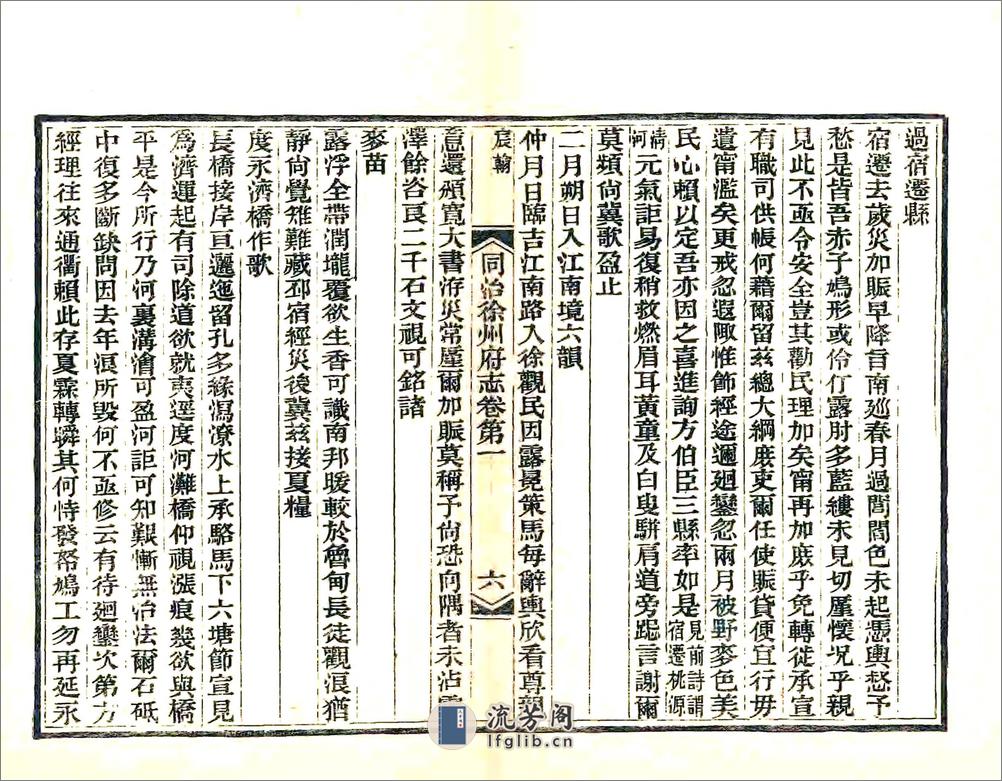 過宿遷縣
宿遷去歲災加賑早降旨南廵春月過閭閻色未起憑輿愁予
愁是皆吾赤子鳩形或伶仃露肘多藍縷未見切厪懷況乎親
見此不亟令安全豈其勸民理加矣甯再加庶乎免轉徙承宣
有職可供帳何藉爾留兹總大綱庶吏爾任使賑貸便宜行毋
遺甯濫矣更戒忽遐陬惟飾經途邇廻鑾忽兩月被野麥色美
民心賴以定吾亦因之喜進詢方伯臣三縣率如是見前詩謂宿遷桃源
清河元氣詎易復稍救燃眉耳黃童及白叟駢肩道旁跽言謝爾
莫頌尚冀歌盈止
二月朔日入江南境六韻
仲月日臨吉江南路入徐觀民因露冕策馬每辭輿欣看尊親
宸翰
同治徐州府志卷第一
六
意還頒寬大書洊災常厪爾加賑莫稱予尚恐向隅者未沾
澤餘咨良二千石文視可銘諸
麥苗
露浮全帶潤壠覆欲生香可識南邦暖較於魯甸長徒觀浪猶
靜尚覺雉難藏邳宿經災後冀兹接夏糧
度永濟橋作歌
長橋接岸亘邐迤留孔多緣瀉潦水上承駱馬下六塘節宣見
爲濟運起有司除道欲就夷遲度河灘橋仰視漲痕幾欲與橋
平是今所行乃河裏溝澮可盈河詎可知艱慚無治法爾石砥
中復多斷缺問因去年潦所毀何不亟修云有待廻鑾次第方
經理往來通衢賴此存夏霖轉瞬其何恃發帑鳩工勿再延永
流芳阁
lfglib.cn